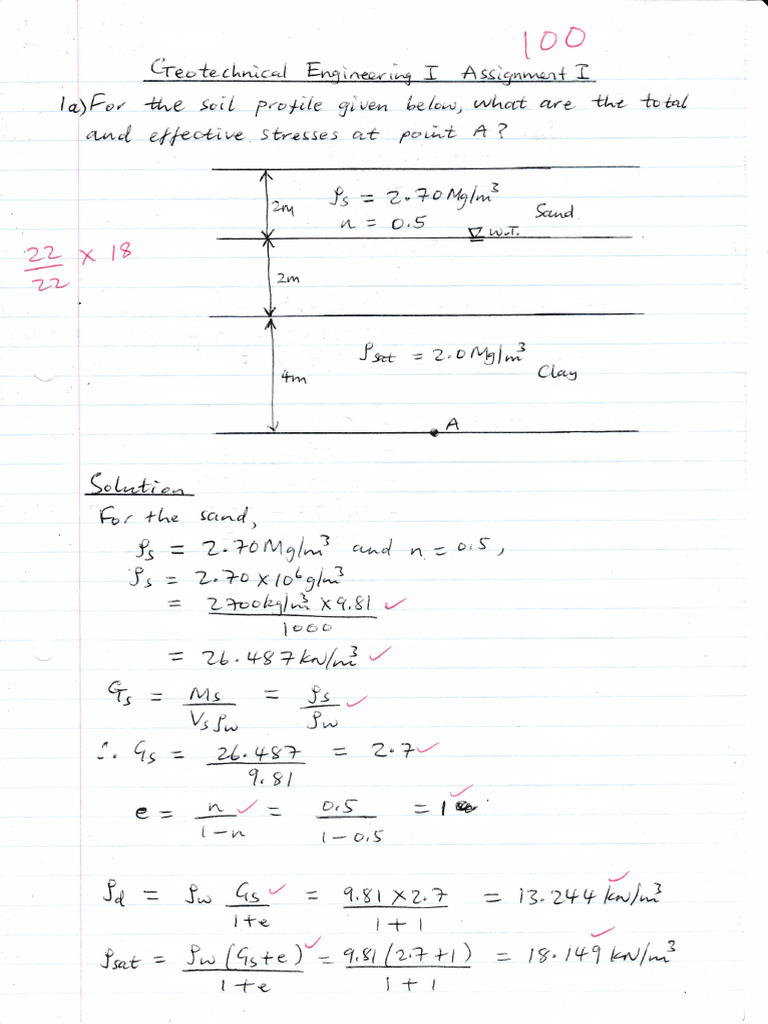 100
Geotechnical Engineering I Assignment I
1a) For the soil profile given below, what are the total
and effective stresses at point A?
2m
ρs = 2.70 Mg/m³
n = 0.5
Sand
W.T.
22/22 × 18
2m
4m
ρsat = 2.0 Mg/m³
Clay
A
Solution
For the sand,
ρs = 2.70 Mg/m³ and n = 0.5,
ρs = 2.70 × 10⁶ g/m³
= 2700 kg/m³ × 9.81 / 1000 ✓
= 26.487 kN/m³ ✓
Gs = Ms / Vs ρw = ρs / ρw ✓
∴ Gs = 26.487 / 9.81 = 2.7 ✓
e = n / 1-n ✓ = 0.5 / 1-0.5 = 1 ✓
ρd = ρw Gs / 1+e ✓ = 9.81 × 2.7 / 1+1 = 13.244 kN/m³ ✓
ρsat = ρw (Gs+e) / 1+e ✓ = 9.81 (2.7+1) / 1+1 = 18.149 kN/m³ ✓